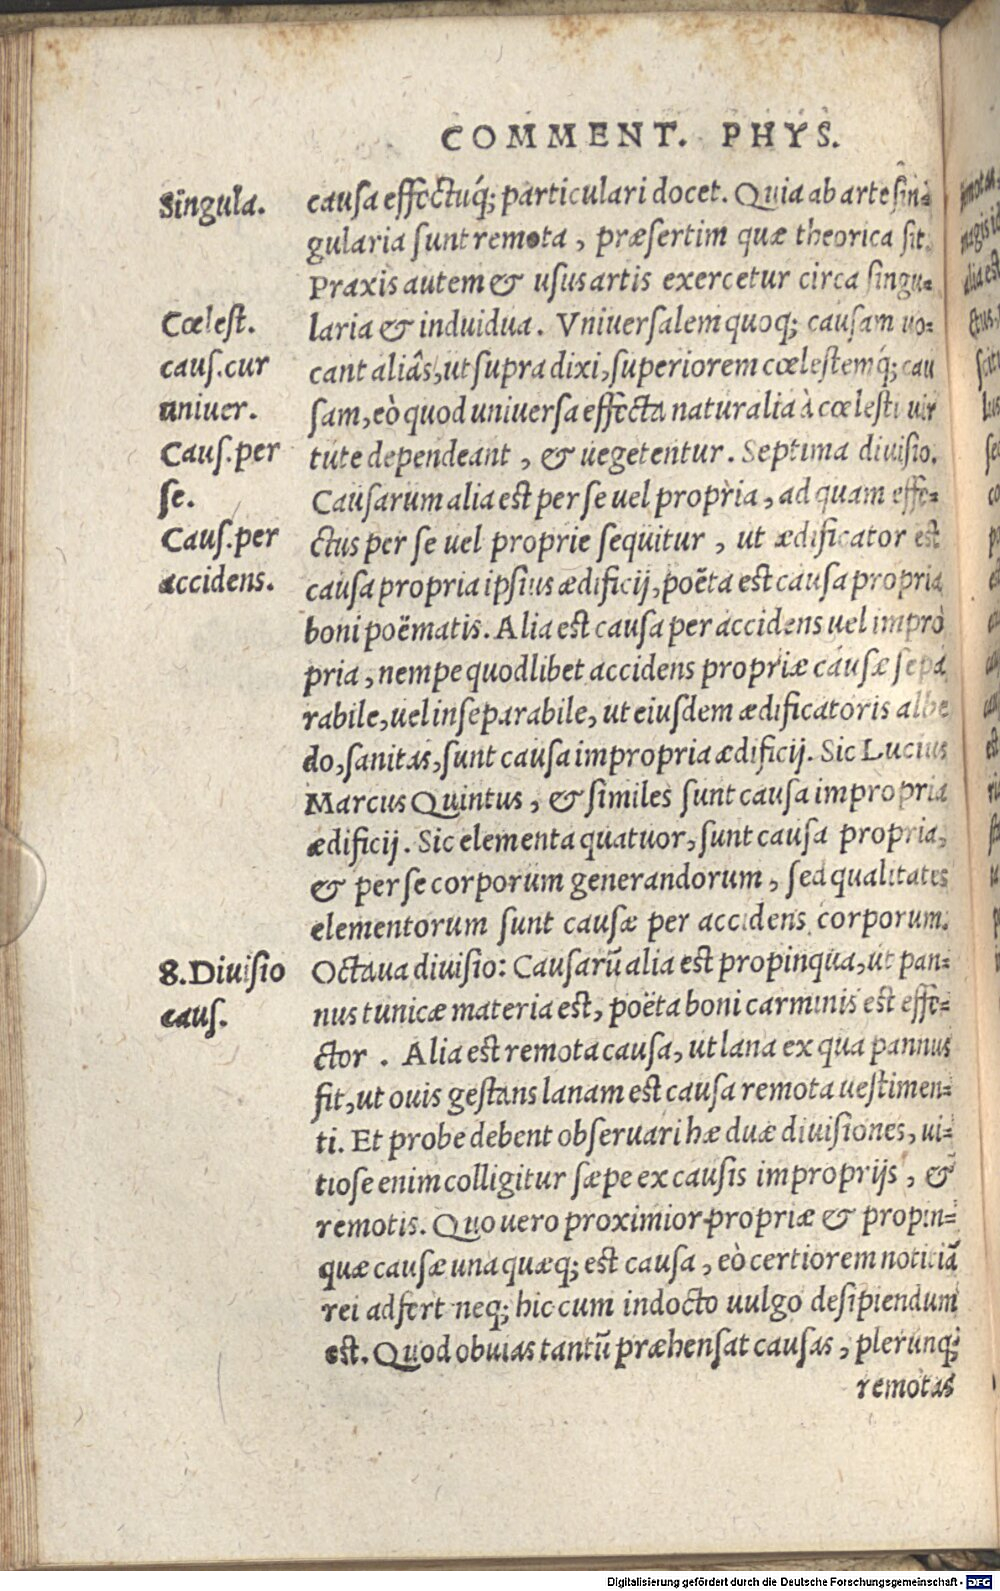 COMMENT. PHYS.
Singula.
causa effectuq́; particulari docet. Quia ab arte sin-
gularia sunt remota, præsertim quæ theorica sit.
Praxis autem & usus artis exercetur circa singu-
Cœlest.
caus. cur
univer.
laria & induidua. Vniuersalem quoq; causam uo-
cant aliâs, ut supra dixi, superiorem cœlestemq́; cau
sam, eò quod uniuersa effecta naturalia à cœlesti uir
Caus. per
se.
tute dependeant, & uegetentur. Septima diuisio.
Causarum alia est per se uel propria, ad quam effe-
Caus. per
accidens.
ctus per se uel proprie sequitur, ut ædificator est
causa propria ipsius ædificij, poëta est causa propria
boni poëmatis. Alia est causa per accidens uel impro
pria, nempe quodlibet accidens propriæ causæ sepa
rabile, uel inseparabile, ut eiusdem ædificatoris albe
do, sanitas, sunt causa impropria ædificij. Sic Lucius
Marcus Quintus, & similes sunt causa impropria
ædificij. Sic elementa quatuor, sunt causa propria,
& per se corporum generandorum, sed qualitates
elementorum sunt causæ per accidens corporum.
8. Diuisio
caus.
Octaua diuisio: Causarū alia est propinqua, ut pan-
nus tunicæ materia est, poëta boni carminis est effe-
ctor. Alia est remota causa, ut lana ex qua pannus
fit, ut ouis gestans lanam est causa remota uestimen-
ti. Et probe debent obseruari hæ duæ diuisiones, ui-
tiose enim colligitur sæpe ex causis improprijs, &
remotis. Quo uero proximior propriæ & propin-
quæ causæ unaquæq; est causa, eò certiorem noticiā
rei adfert neq; hic cum indocto uulgo desipiendum
est. Quod obuias tantū præhensat causas, plerunq;
remotas